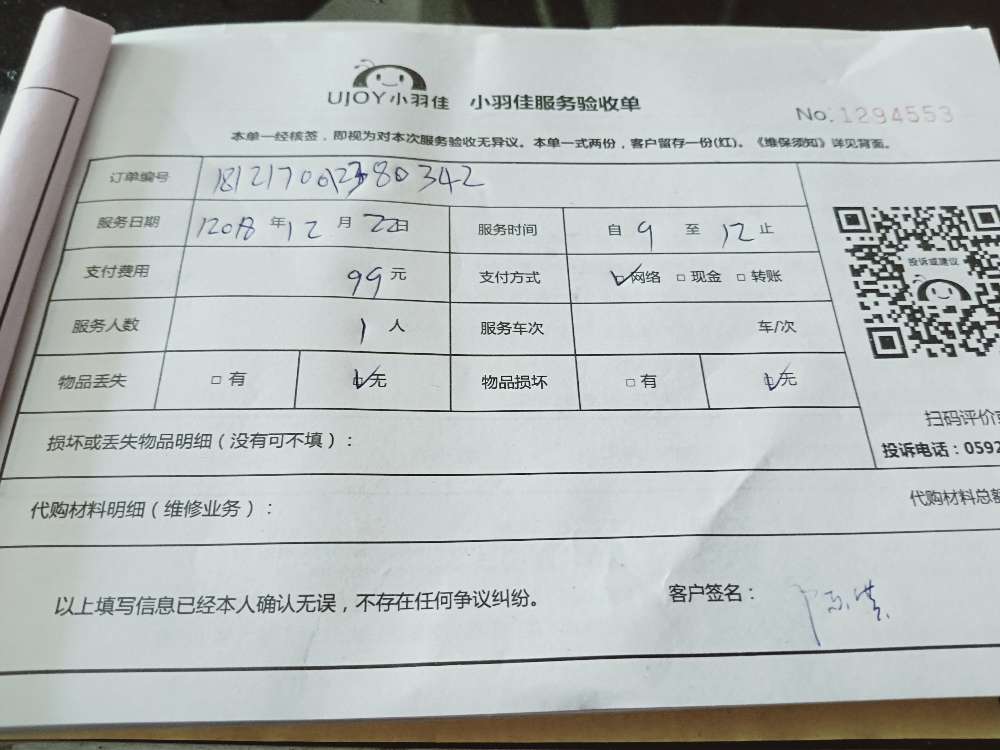 UJOY小羽佳 小羽佳服务验收单
No.1294553
本单一经核签，即视为对本次服务验收无异议。本单一式两份，客户留存一份(红)。《维保须知》详见背面。
订单编号
服务日期 2018 年 12 月 22日 服务时间 自 9 至 12 止
投诉或建议
支付费用 99 元 支付方式 □网络 □现金 □转账
服务人数 1 人 服务车次 车/次
物品丢失 □有 □无 物品损坏 □有 □无
扫码评价
损坏或丢失物品明细（没有可不填）：
投诉电话：0592
代购材料明细（维修业务）：
代购材料总额
以上填写信息已经本人确认无误，不存在任何争议纠纷。
客户签名：